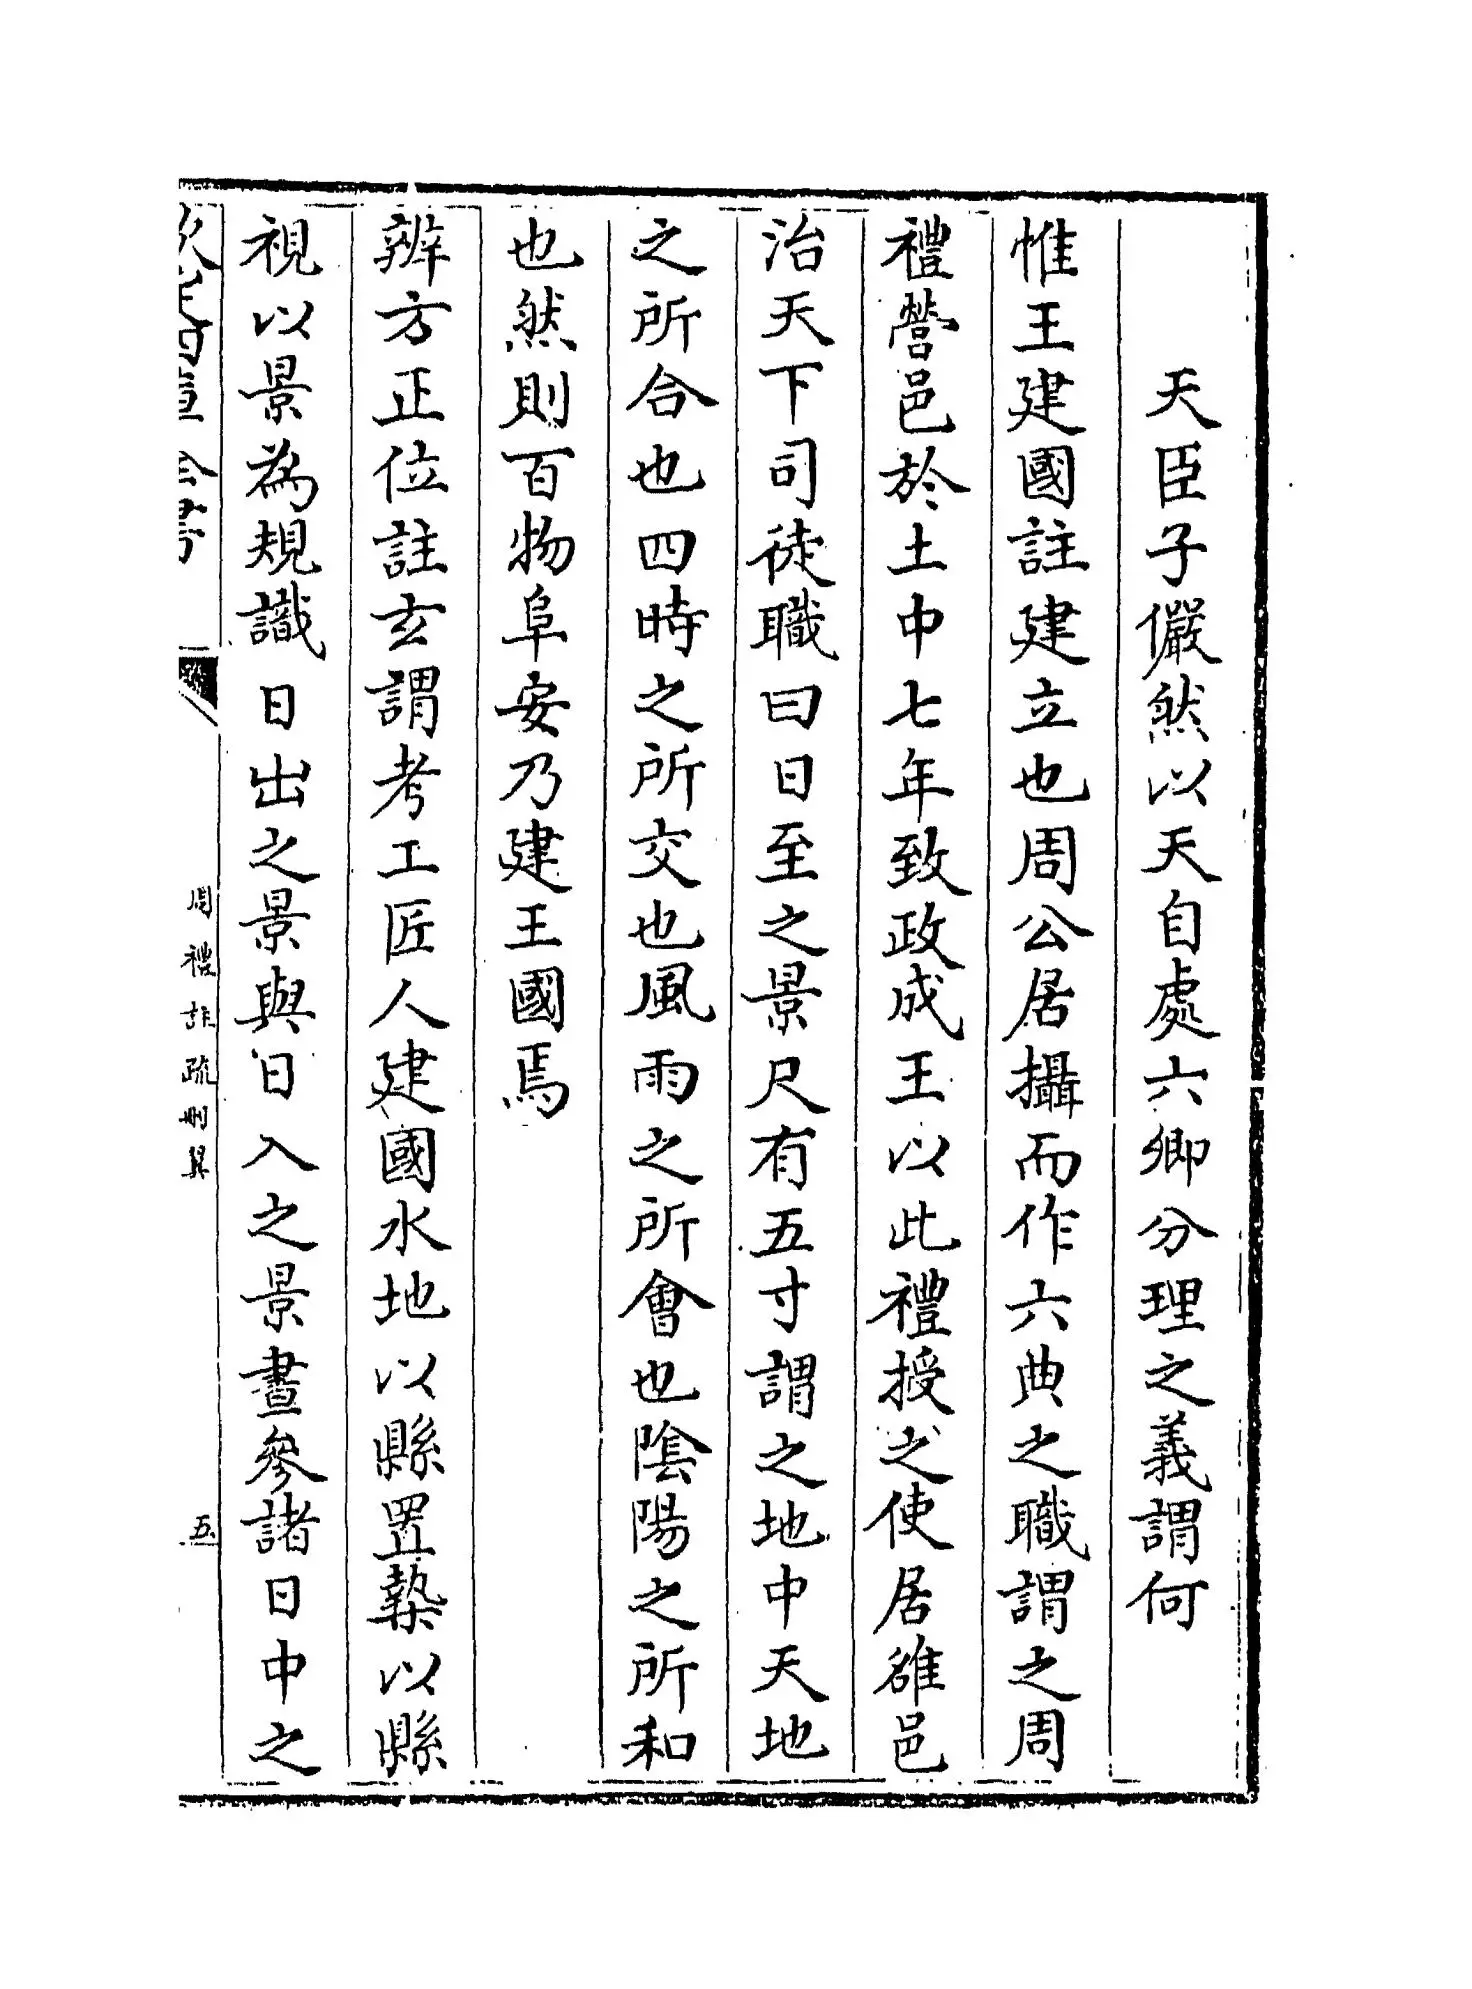 天臣子儼然以天自處六卿分理之義謂何
惟王建國註建立也周公居攝而作六典之職謂之周
禮營邑於土中七年致政成王以此禮授之使居雒邑
治天下司徒職曰日至之景尺有五寸謂之地中天地
之所合也四時之所交也風雨之所會也陰陽之所和
也然則百物阜安乃建王國焉
辨方正位註玄謂考工匠人建國水地以縣置槷以縣
視以景為規識日出之景與日入之景晝參諸日中之
欽定四庫全書
周禮註疏刪翼
五